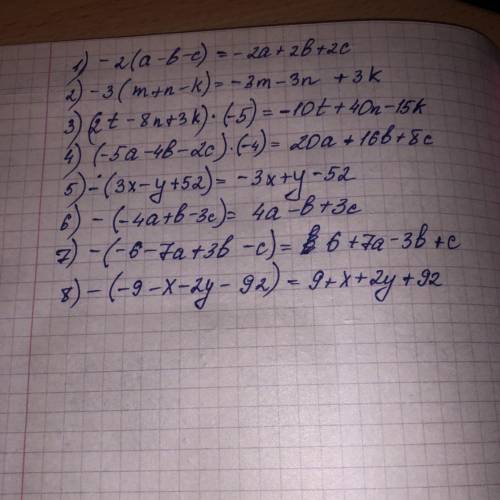 1) -2(a-b-c)=-2a+2b+2c
2) -3(m+n-k)=-3m-3n +3k
3) (2t-8n+3k)·(-5)=-10t+40n-15k
4) (-5a-4b-2c)·(-4)=20a+16b+8c
5) -(3x-y+52)=-3x+y-52
6) -(-4a+b-3c)=4a-b+3c
7) -(-6-7a+3b-c)= 6+7a-3b+c
8) -(-9-x-2y-92)=9+x+2y+92